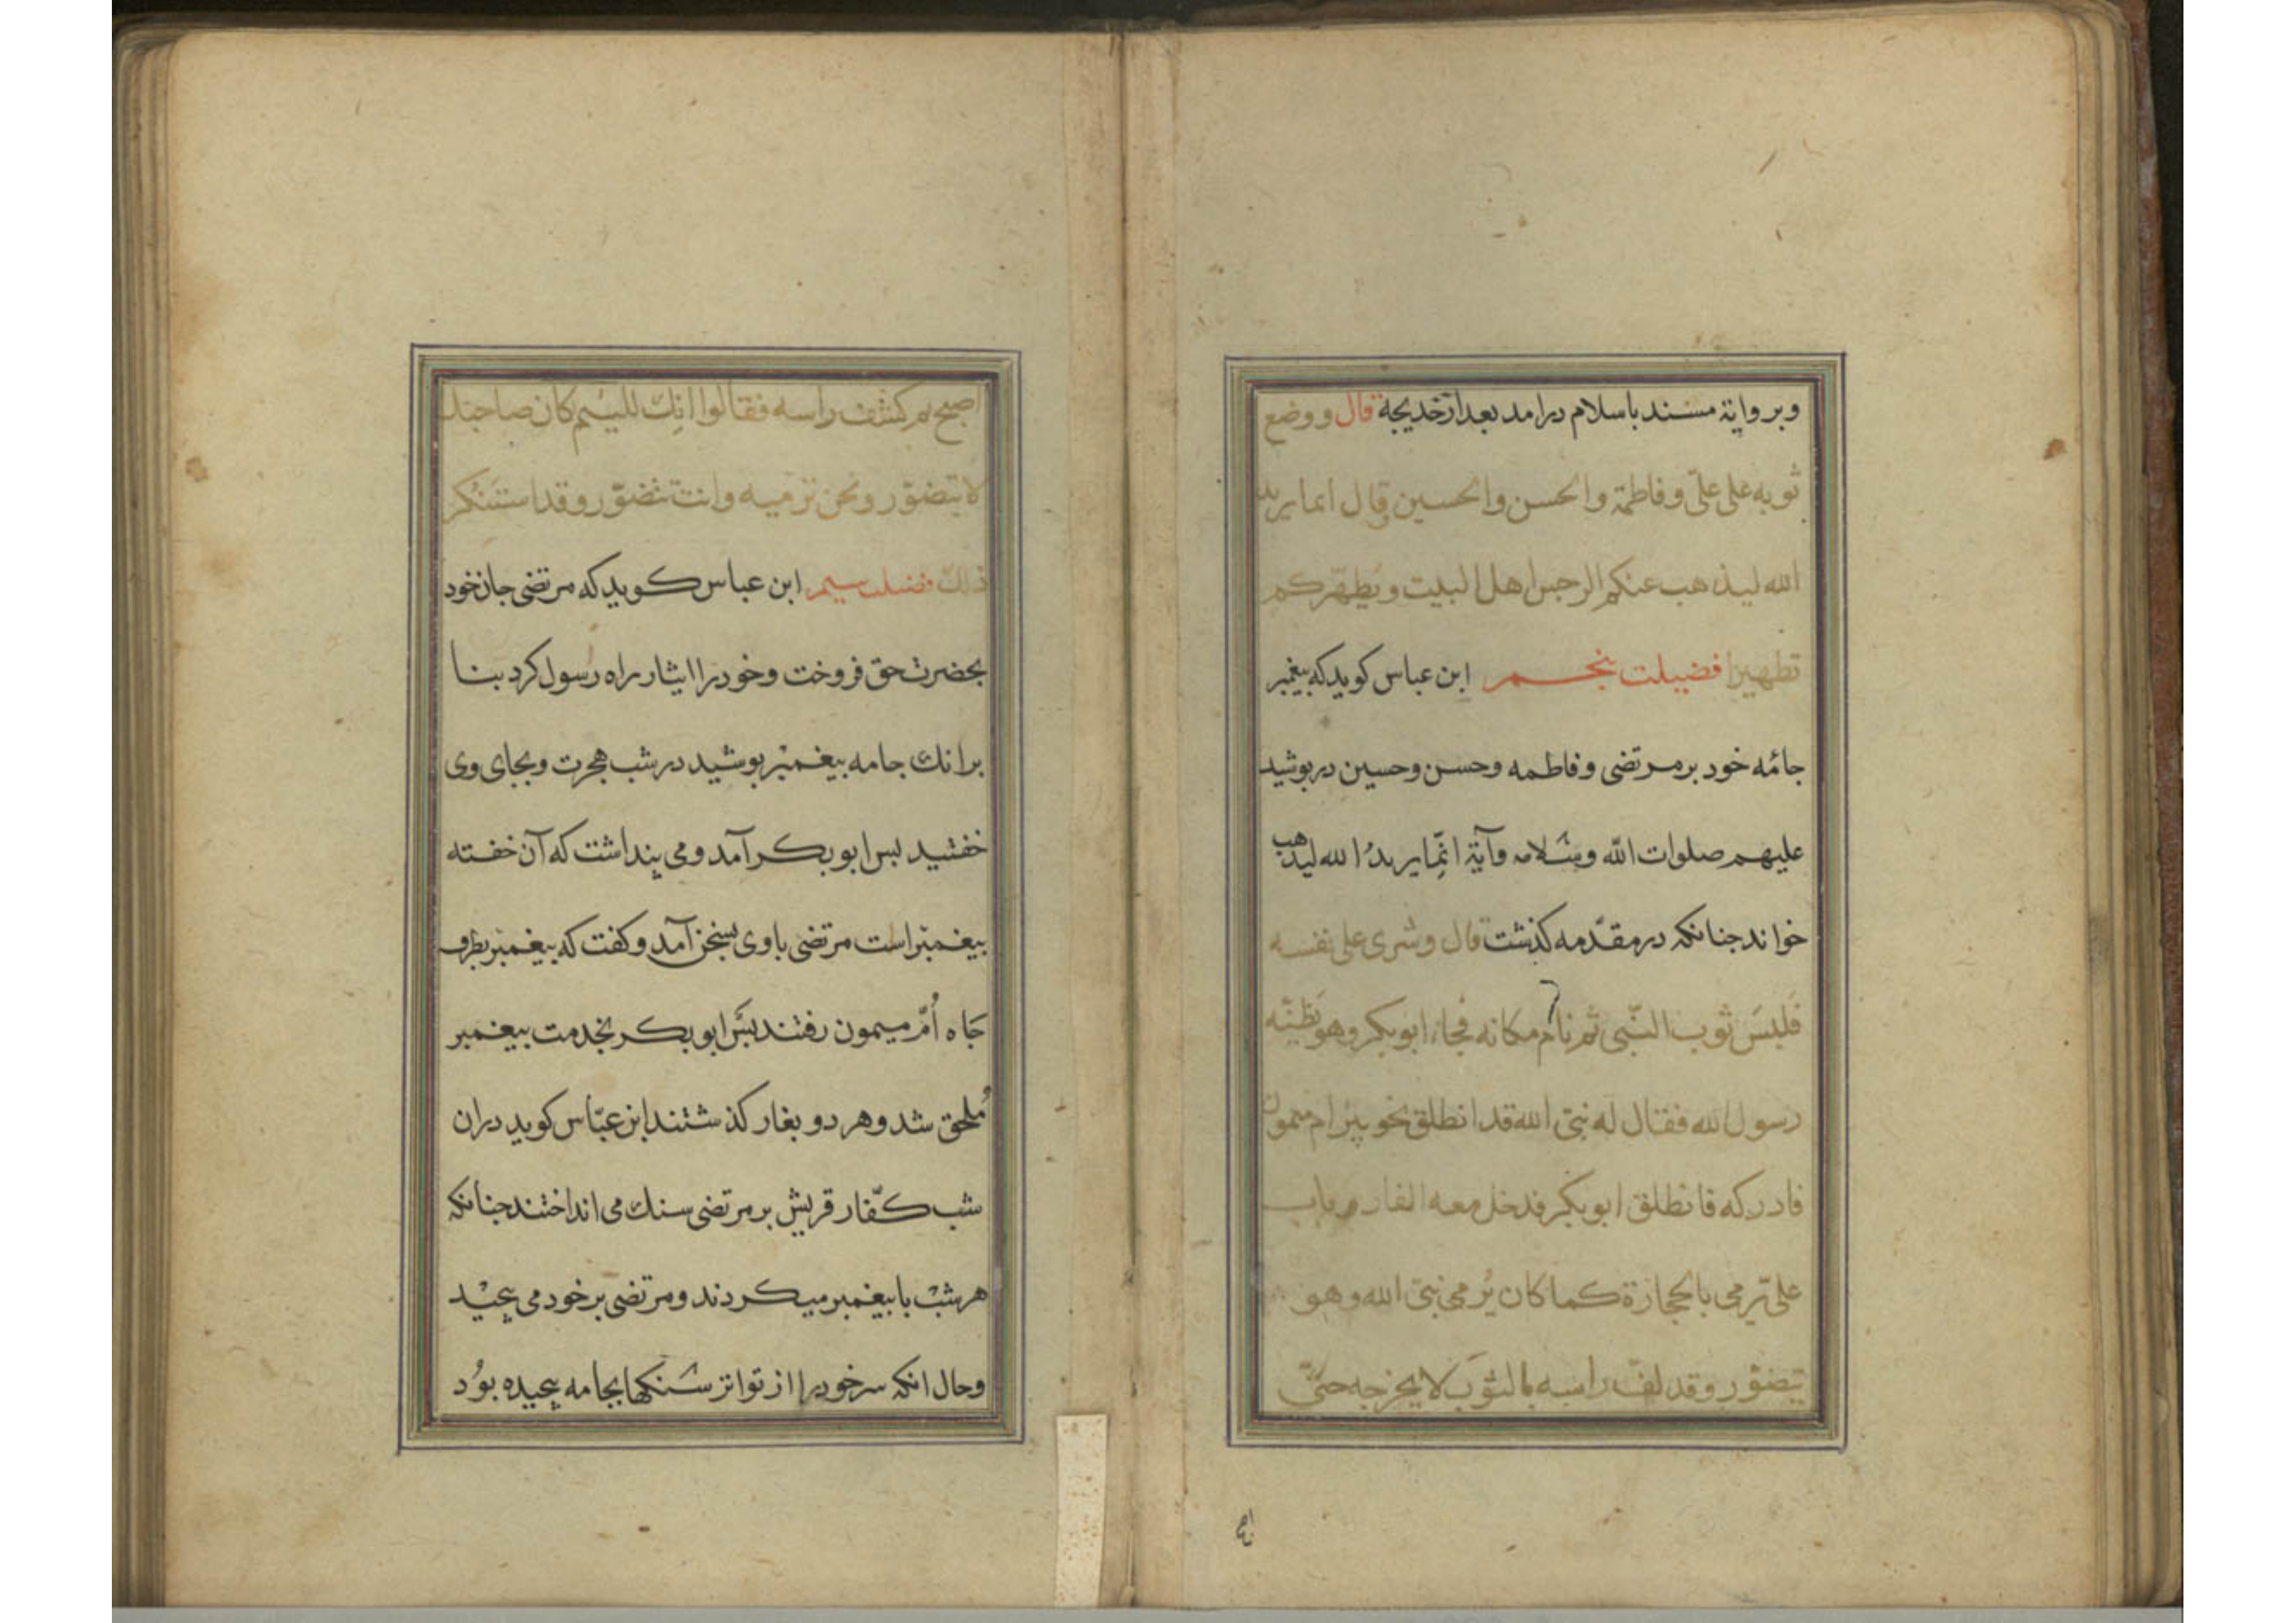 وبروایة مسند باسلام درامد بعد از خدیجة قال ووضع
ثوبه علی علیّ وفاطمة والحسن والحسین قال انما یرید
الله لیذهب عنکم الرجس اهل البیت ویطهّرکم
تطهیرا فضیلت پنجم ابن عباس کوید که پیغمبر
جامٔه خود بر مرتضی وفاطمه وحسن وحسین درپوشید
علیهم صلوات اللّه وسلامه وآیة انّما یریدُ الله لیذهب
خواند جنانکه در مقدّمه کذشت قال وشری علی نفسه
فلبسَ ثوب النّبی ثم نام مکانه فجاء ابوبکر وهو یَظنّه
رسول الله فقال له نبیّ الله قد انطلق نحو بیٔر ام میمون
فادرکه فانطلق ابوبکر فدخل معه الغار وبات
علیّ یرمی بالحجارة کما کان یُرمی نبیّ الله وهو
یتضوّر وقد لفّ راسه بالثوب لا یخرجه حتیّ
اص
اصبح ثم کشف راسه فقالوا انّك للئیم کان صاحبك
لا یتضوّر ونحن نرمیه وانت تتضوّر وقد استنکر
ذلك فضیلت سیم ابن عباس کوید که مرتضی جان خود
بحضرت حق فروخت وخود را ایثار راه رسول کرد بنا
بر انك جامه پیغمبر بوشید در شب هجرت وبجای وی
خفتید بس ابو بکر آمد ومی پنداشت که آن خفته
پیغمبر است مرتضی با وی بسخن آمد وکفت که پیغمبر بطرف
جَاه اُمّ میمون رفتند بسَ ابو بکر بخدمت پیغمبر
مُلحق شد وهر دو بغار کذشتند ابن عبّاس کوید در ان
شب کفّار قریش بر مرتضی سنك می انداختند جنانکه
هر شب با پیغمبر میکردند ومرتضی بر خود می پیجید
وحال انکه سر خود را از تواتر سنکها بجامه پیجیده بوُد